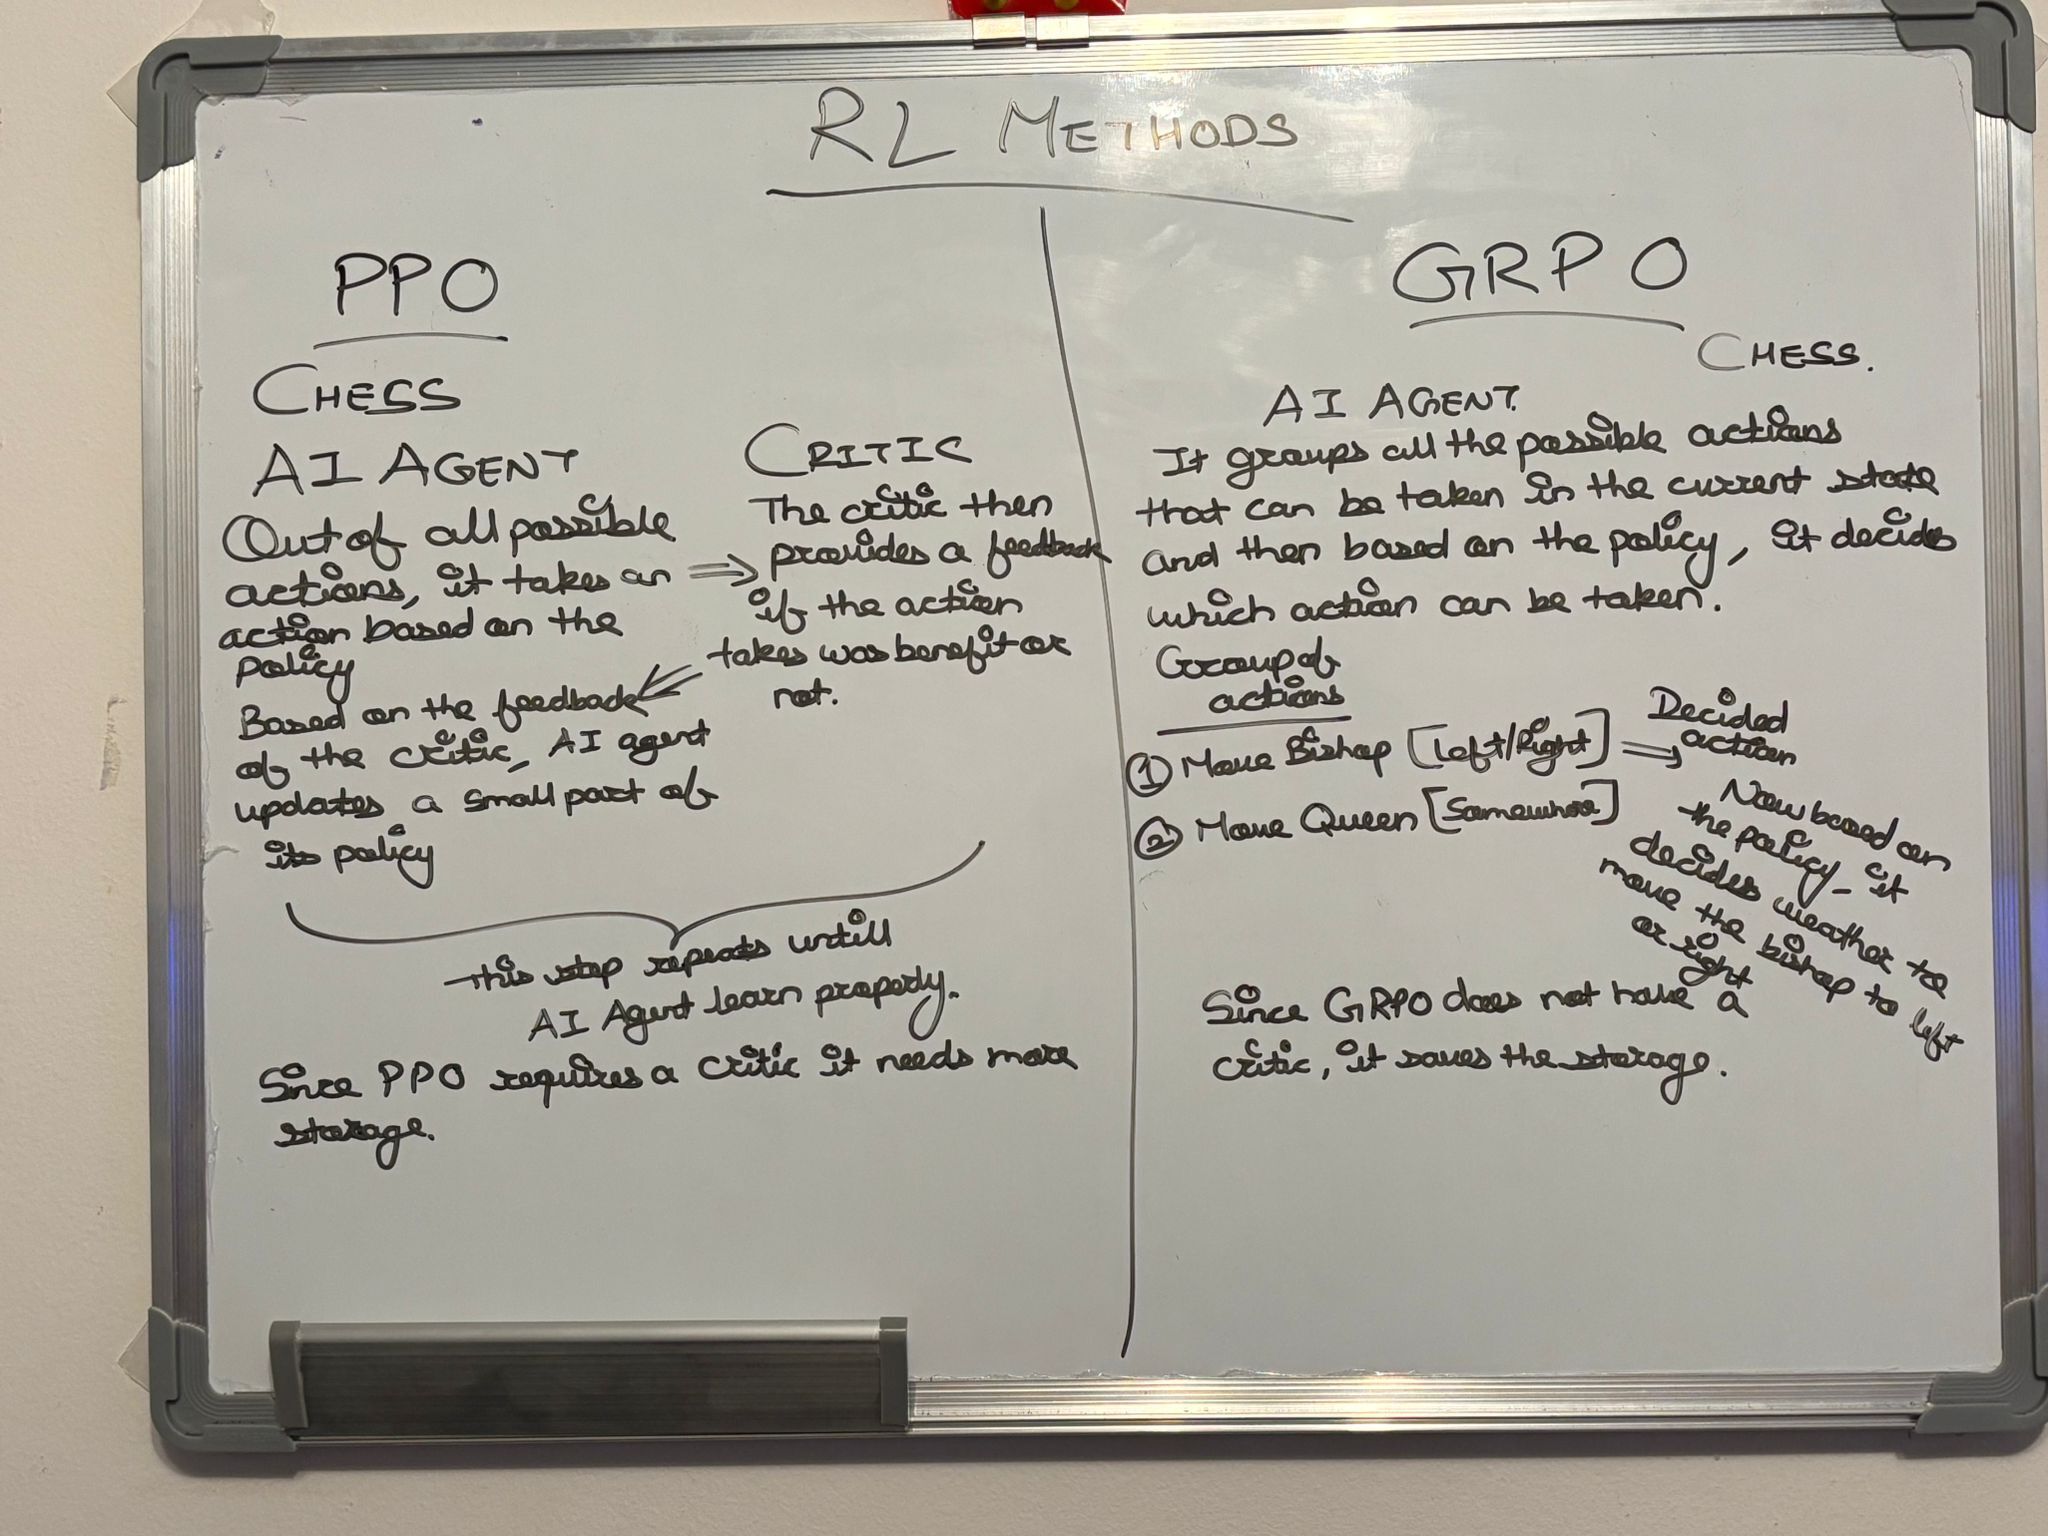 RL METHODS
PPO
CHESS
AI AGENT
Out of all possible
actions, it takes an
action based on the
policy
CRITIC
The critic then
provides a feedback
if the action
takes was benefit or
not.
Based on the feedback
of the critic, AI agent
updates a small part of
its policy
This step repeats untill
AI Agent learn properly.
Since PPO requires a critic it needs more
storage.
GRPO
CHESS.
AI AGENT.
It groups all the possible actions
that can be taken in the current state
and then based on the policy, it decides
which action can be taken.
Group of
actions
① Move Bishop [Left/Right] ⇒
② Move Queen [Somewhere]
Decided
action
Now based on
the policy, it
decides weather to
move the bishop to left
or right
Since GRPO does not have a
critic, it saves the storage.